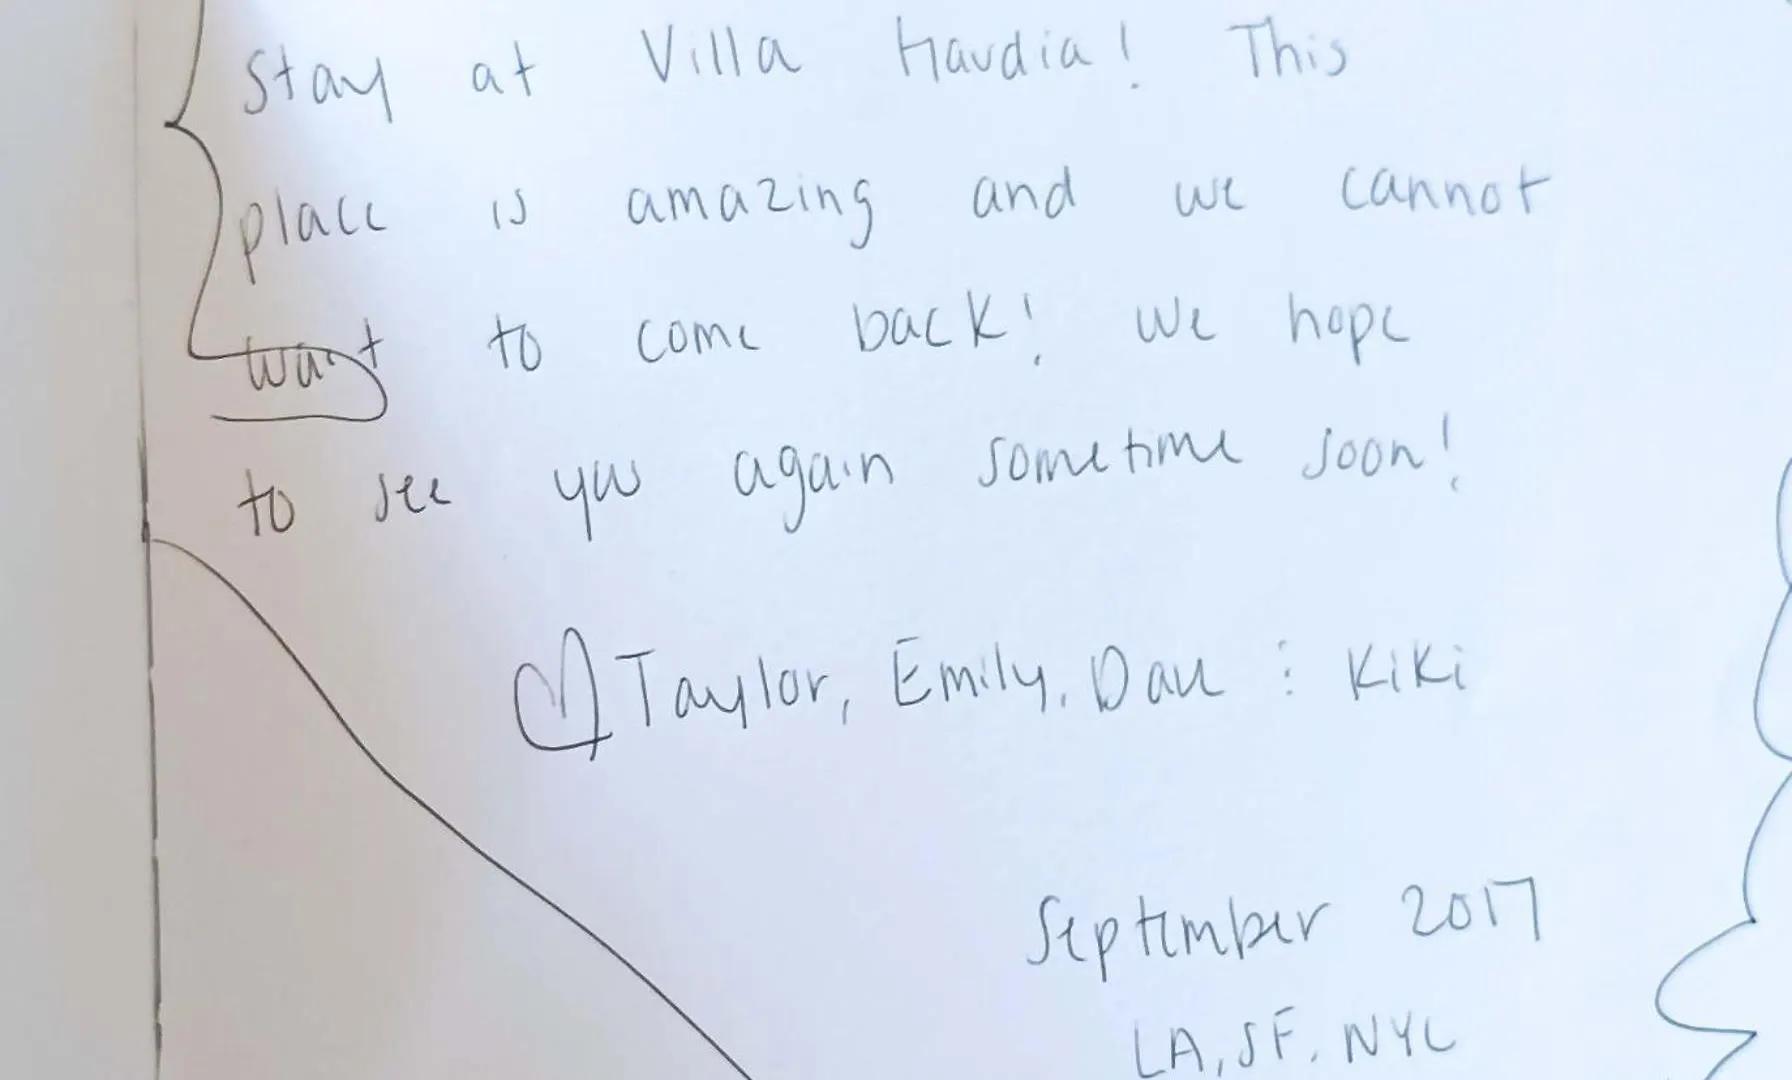 Stay at Villa
! This
place is amazing and we cannot
want to come back! We hope
to see you again sometime soon!
Taylor, Emily, Dave & Kiki
September 2017
LA, SF, NYC